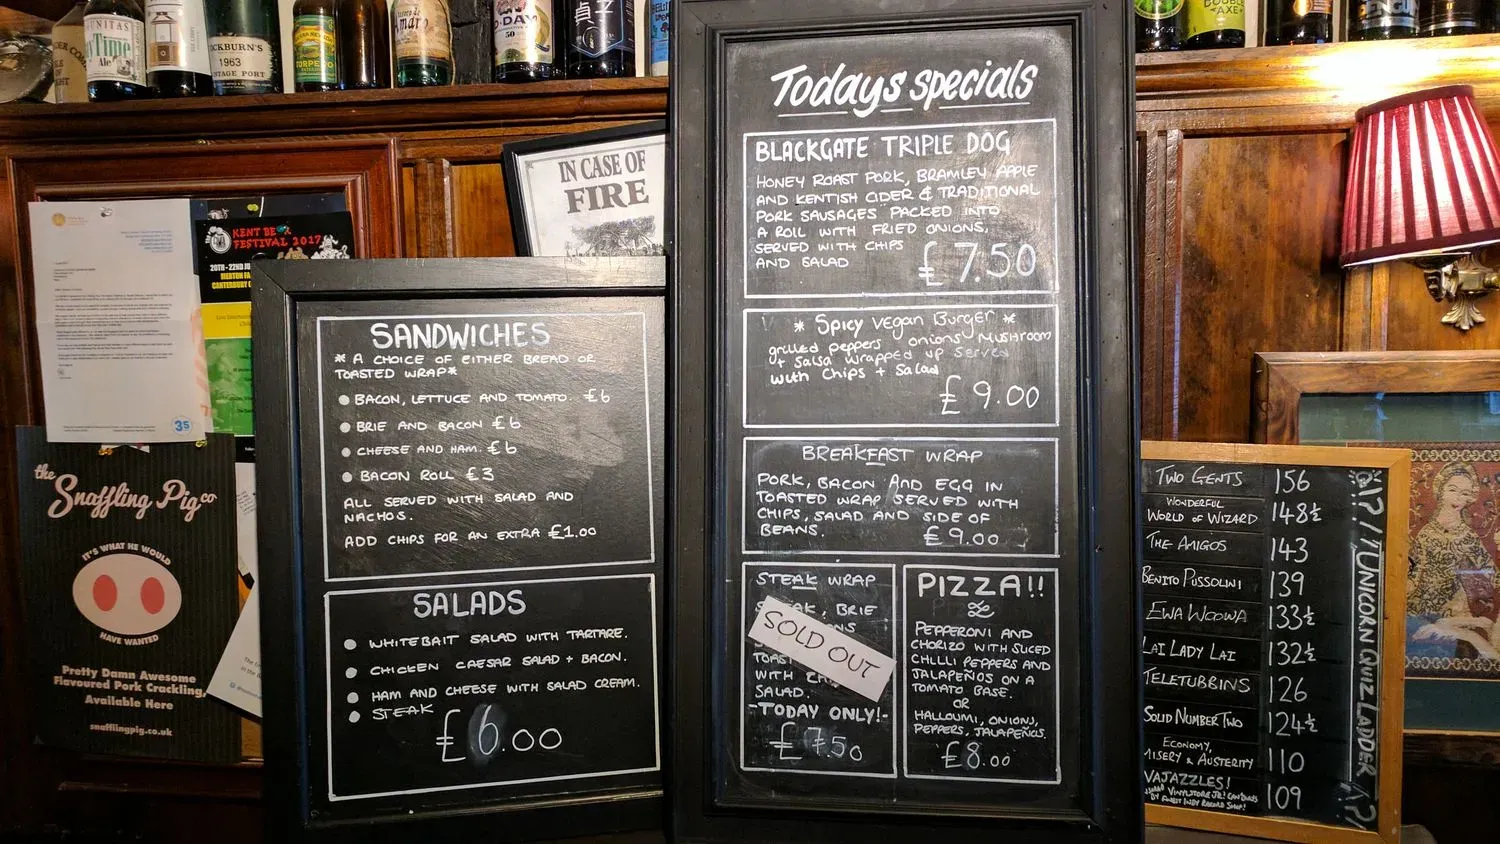 UNITAS
DayTime
Ale
CKBURN'S
1963
TAGE PORT
TORPEDO
Amaro
D-DAY
50
DOUBLE
AXE
IN CASE OF
FIRE
KENT BEER
FESTIVAL 2017
20TH - 22ND JU
MERTON FA
CANTERBURY C
35
the
Snaffling Pig co
IT'S WHAT HE WOULD
HAVE WANTED
Pretty Damn Awesome
Flavoured Pork Crackling,
Available Here
snafflingpig.co.uk
SANDWICHES
* A CHOICE OF EITHER BREAD OR
TOASTED WRAP*
BACON, LETTUCE AND TOMATO. £6
BRIE AND BACON £6
CHEESE AND HAM. £6
BACON ROLL £3
ALL SERVED WITH SALAD AND
NACHOS.
ADD CHIPS FOR AN EXTRA £1.00
SALADS
WHITEBAIT SALAD WITH TARTARE.
CHICKEN CAESAR SALAD + BACON.
HAM AND CHEESE WITH SALAD CREAM.
STEAK
£6.00
Todays specials
BLACKGATE TRIPLE DOG
HONEY ROAST PORK, BRAMLEY APPLE
AND KENTISH CIDER & TRADITIONAL
PORK SAUSAGES PACKED INTO
A ROLL WITH FRIED ONIONS,
SERVED WITH CHIPS
AND SALAD
£7.50
* Spicy Vegan Burger *
grilled peppers onions Mushroom
+ Salsa wrapped up Served
with Chips + Salad
£9.00
BREAKFAST WRAP
PORK, BACON AND EGG IN
TOASTED WRAP SERVED WITH
CHIPS, SALAD AND SIDE OF
BEANS.
£9.00
STEAK WRAP
BRIE
SOLD OUT
WITH
SALAD.
-TODAY ONLY!-
£7.50
PIZZA!!
PEPPERONI AND
CHORIZO WITH SLICED
CHILLI PEPPERS AND
JALAPEÑOS ON A
TOMATO BASE.
OR
HALLOUMI, ONIONS,
PEPPERS, JALAPEÑOS.
£8.00
TWO GENTS 156
WONDERFUL
WORLD OF WIZARD 148½
THE AMIGOS 143
BENITO PUSSOLINI 139
EWA WOOWA 133½
LAI LADY LAI 132½
TELETUBBINS 126
SOLID NUMBER TWO 124½
ECONOMY,
MISERY & AUSTERITY 110
VAJAZZLES! 109
UNICORN QUIZ LADDER